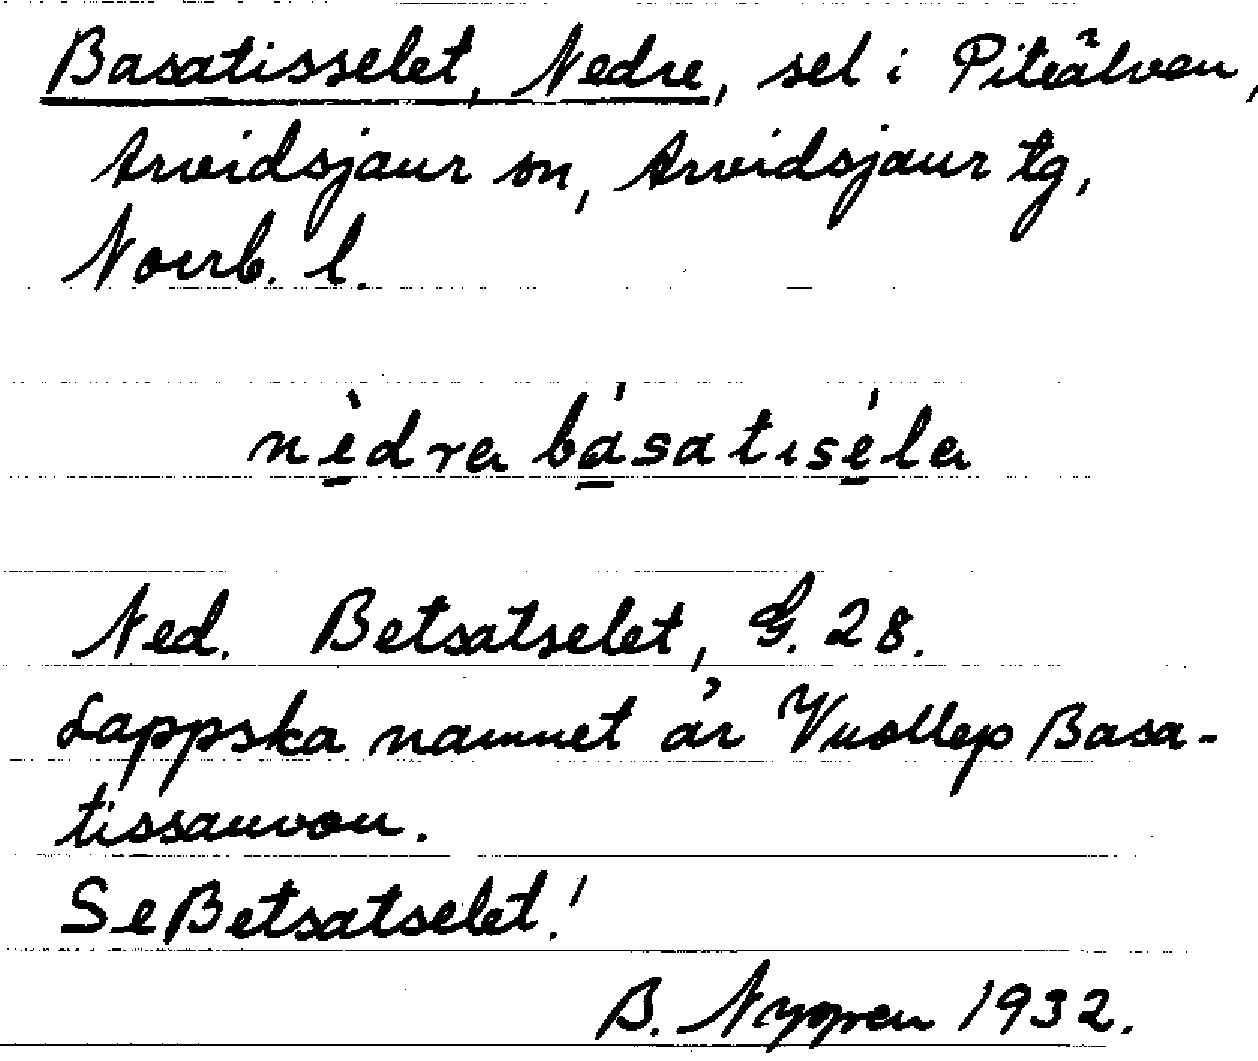 Basatisselet, Nedre, sel i Piteälven,
Arvidsjaur sn, Arvidsjaur tg,
Norrb. l.
nèdra básatiséla
Ned. Betsatselet, G. 28.
Lappska namnet är Vuollep Basa-
tissauvon.
Se Betsatselet!
B. Nygren 1932.